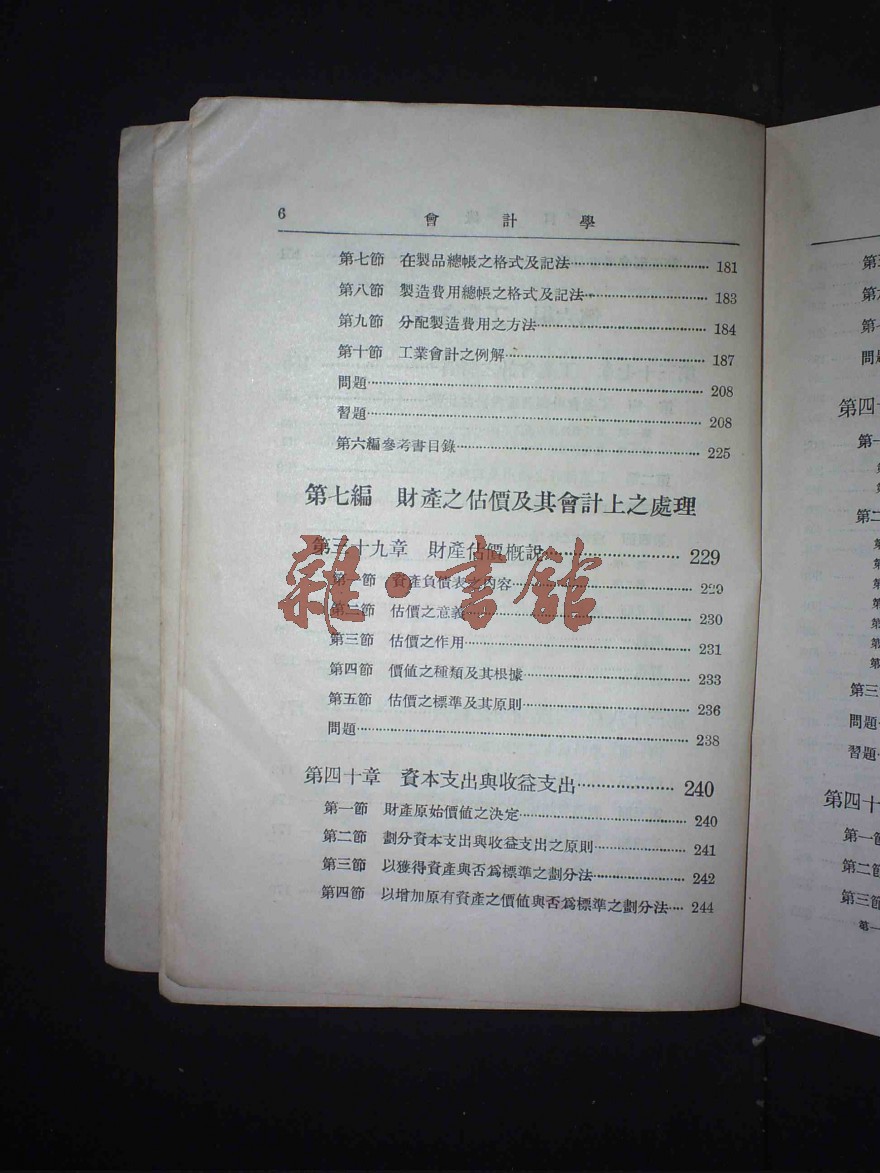 6 會計學
第七節 在製品總帳之格式及記法 181
第八節 製造費用總帳之格式及記法 183
第九節 分配製造費用之方法 184
第十節 工業會計之例解 187
問題 208
習題 208
第六編參考書目錄 225
第七編 財產之估價及其會計上之處理
第三十九章 財產估價概說 229
第一節 資產負債表之內容 229
雜·書館
第二節 估價之意義 230
第三節 估價之作用 231
第四節 價值之種類及其根據 233
第五節 估價之標準及其原則 236
問題 238
第四十章 資本支出與收益支出 240
第一節 財產原始價值之決定 240
第二節 劃分資本支出與收益支出之原則 241
第三節 以獲得資產與否爲標準之劃分法 242
第四節 以增加原有資產之價值與否爲標準之劃分法 244
問
第四十
第一
第二
第三
問題
習題
第四十
第一節
第二節
第三節
第一